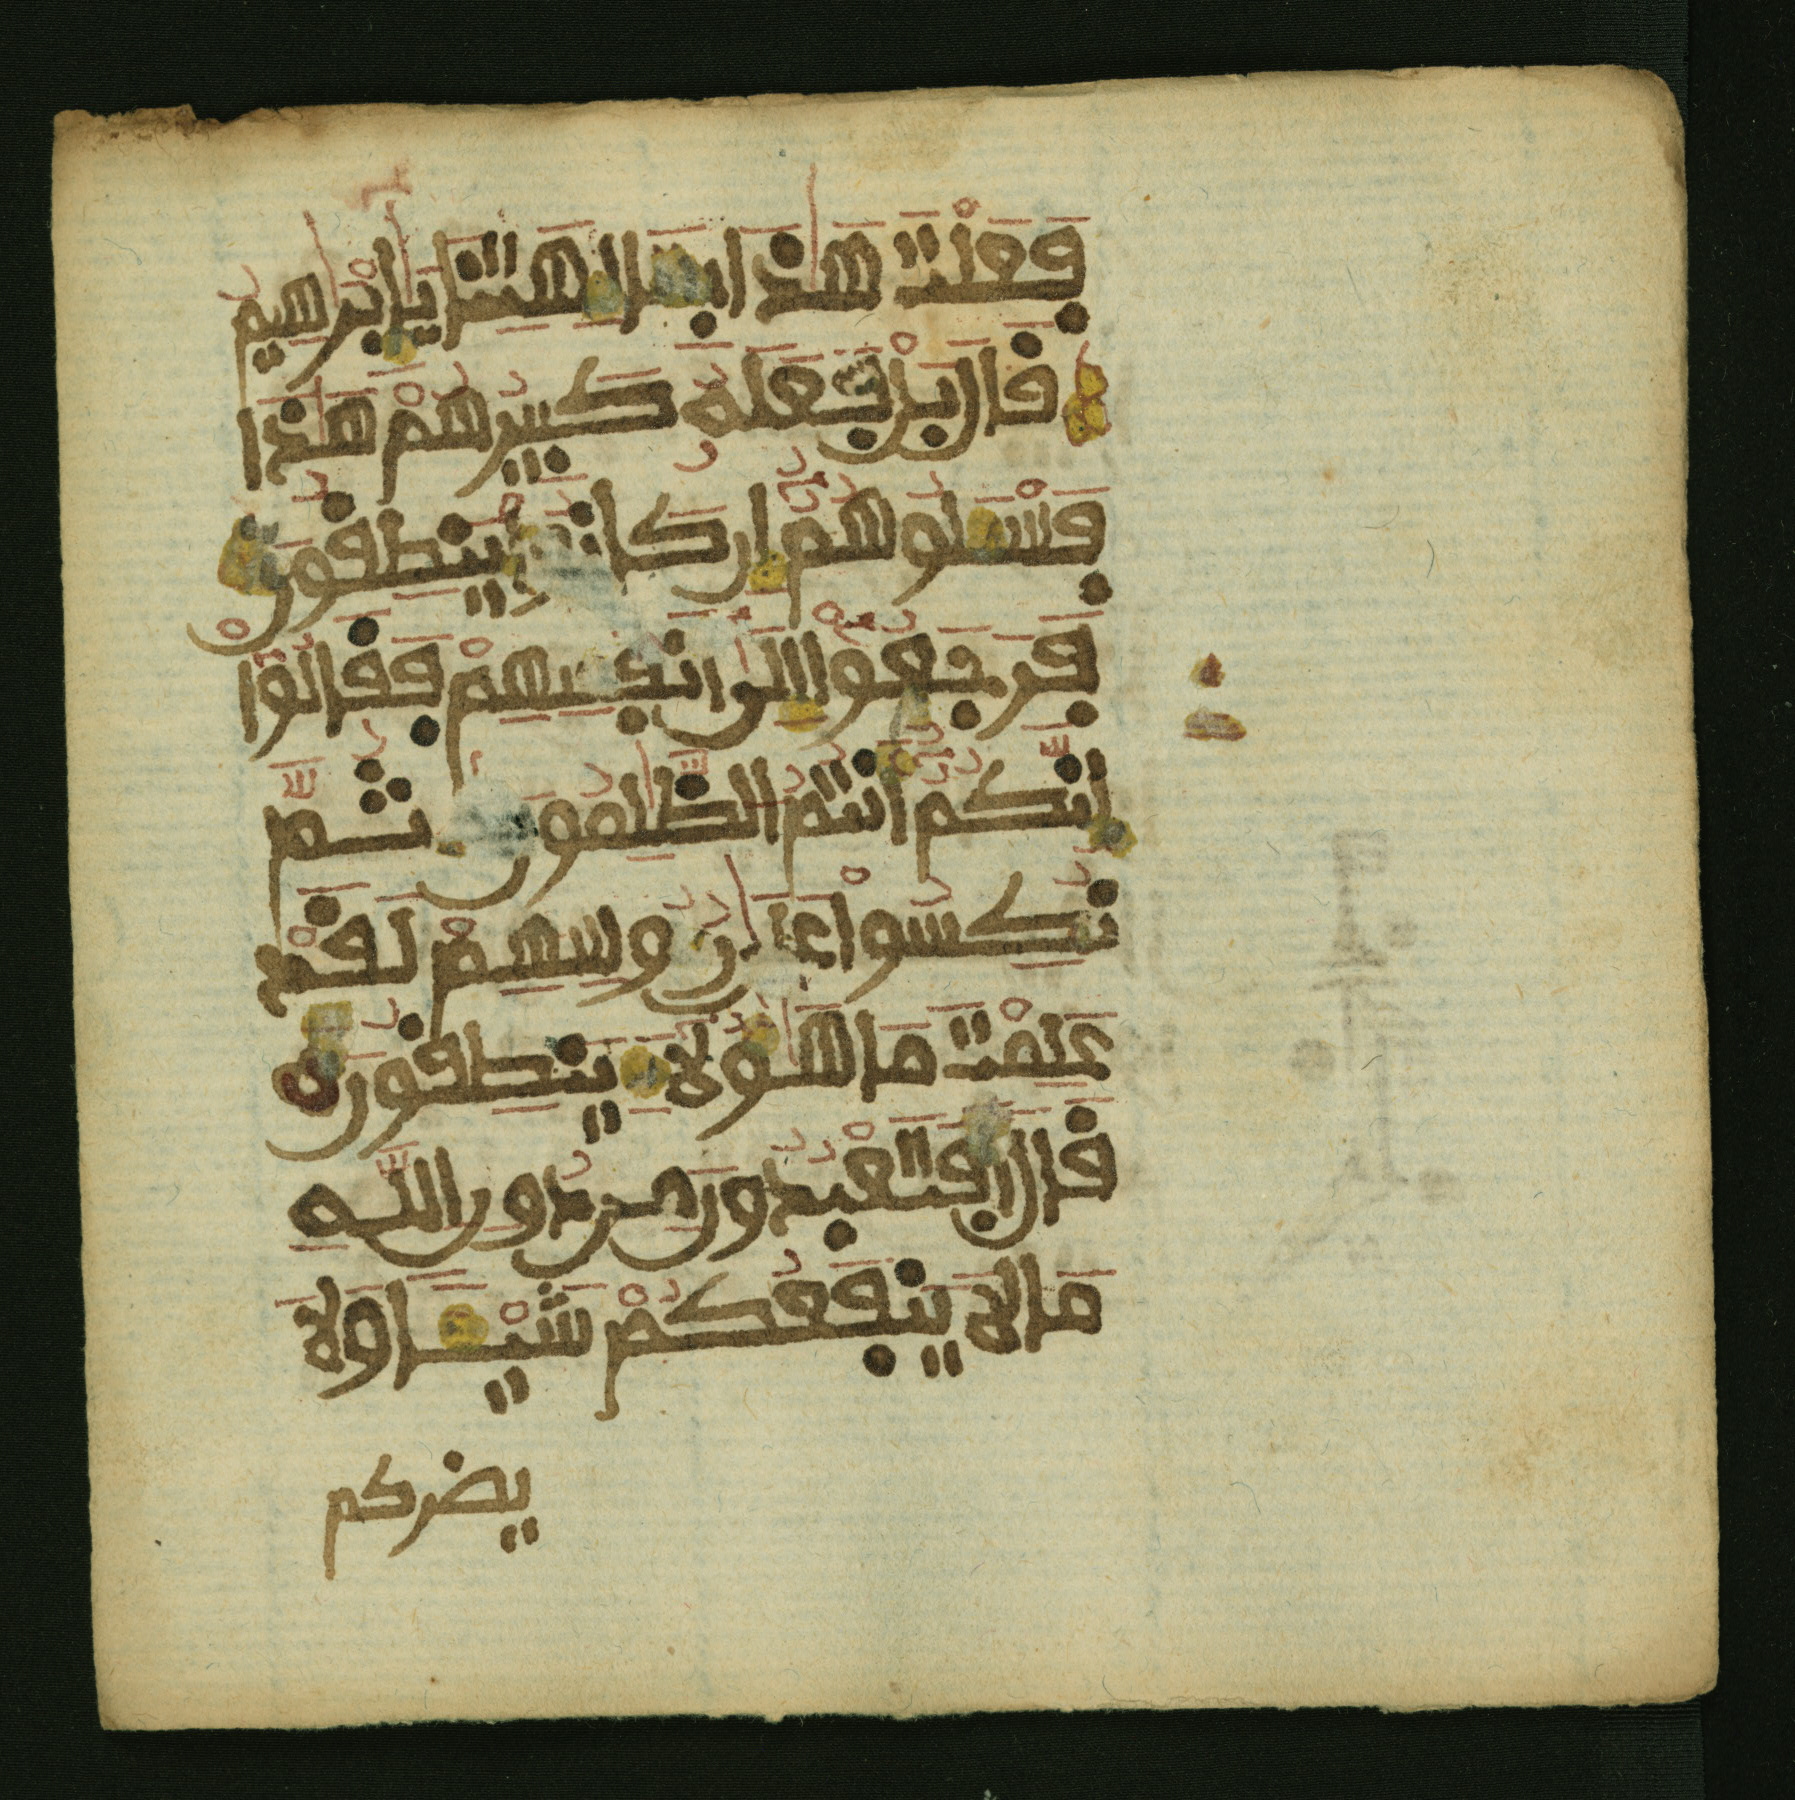 فَعَلْتَ هَٰذَا بِـَٔالِهَتِنَا يَٰإِبْرَٰهِيمُ
قَالَ بَلْ فَعَلَهُۥ كَبِيرُهُمْ هَٰذَا
فَسْـَٔلُوهُمُۥٓ إِن كَانُوا۟ يَنطِقُونَ
فَرَجَعُوٓا۟ إِلَىٰٓ أَنفُسِهِمْ فَقَالُوٓا۟
إِنَّكُمُۥٓ أَنتُمُ ٱلظَّٰلِمُونَ ثُمَّ
نُكِسُوا۟ عَلَىٰ رُءُوسِهِمْ لَقَدْ
عَلِمْتَ مَا هَٰٓؤُلَآءِ يَنطِقُونَ
قَالَ أَفَتَعْبُدُونَ مِن دُونِ ٱللَّهِ
مَا لَا يَنفَعُكُمْ شَيْـًٔا وَلَا
يضركم